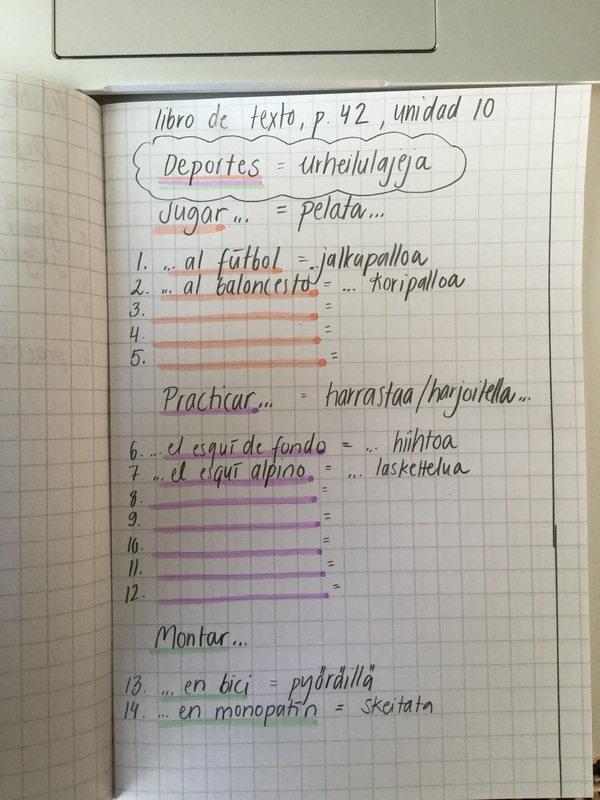 libro de texto, p. 42, unidad 10
Deportes = urheilulajeja
Jugar... = pelata...
1. ... al fútbol = ...jalkapalloa
2. ... al baloncesto = ... koripalloa
3. =
4. =
5. =
Practicar... = harrastaa/harjoitella...
6. ... el esquí de fondo = ... hiihtoa
7 ... el esquí alpino = ... laskettelua
8. =
9. =
10. =
11. =
12. =
Montar...
13. ... en bici = pyöräillä
14. ... en monopatín = skeitata